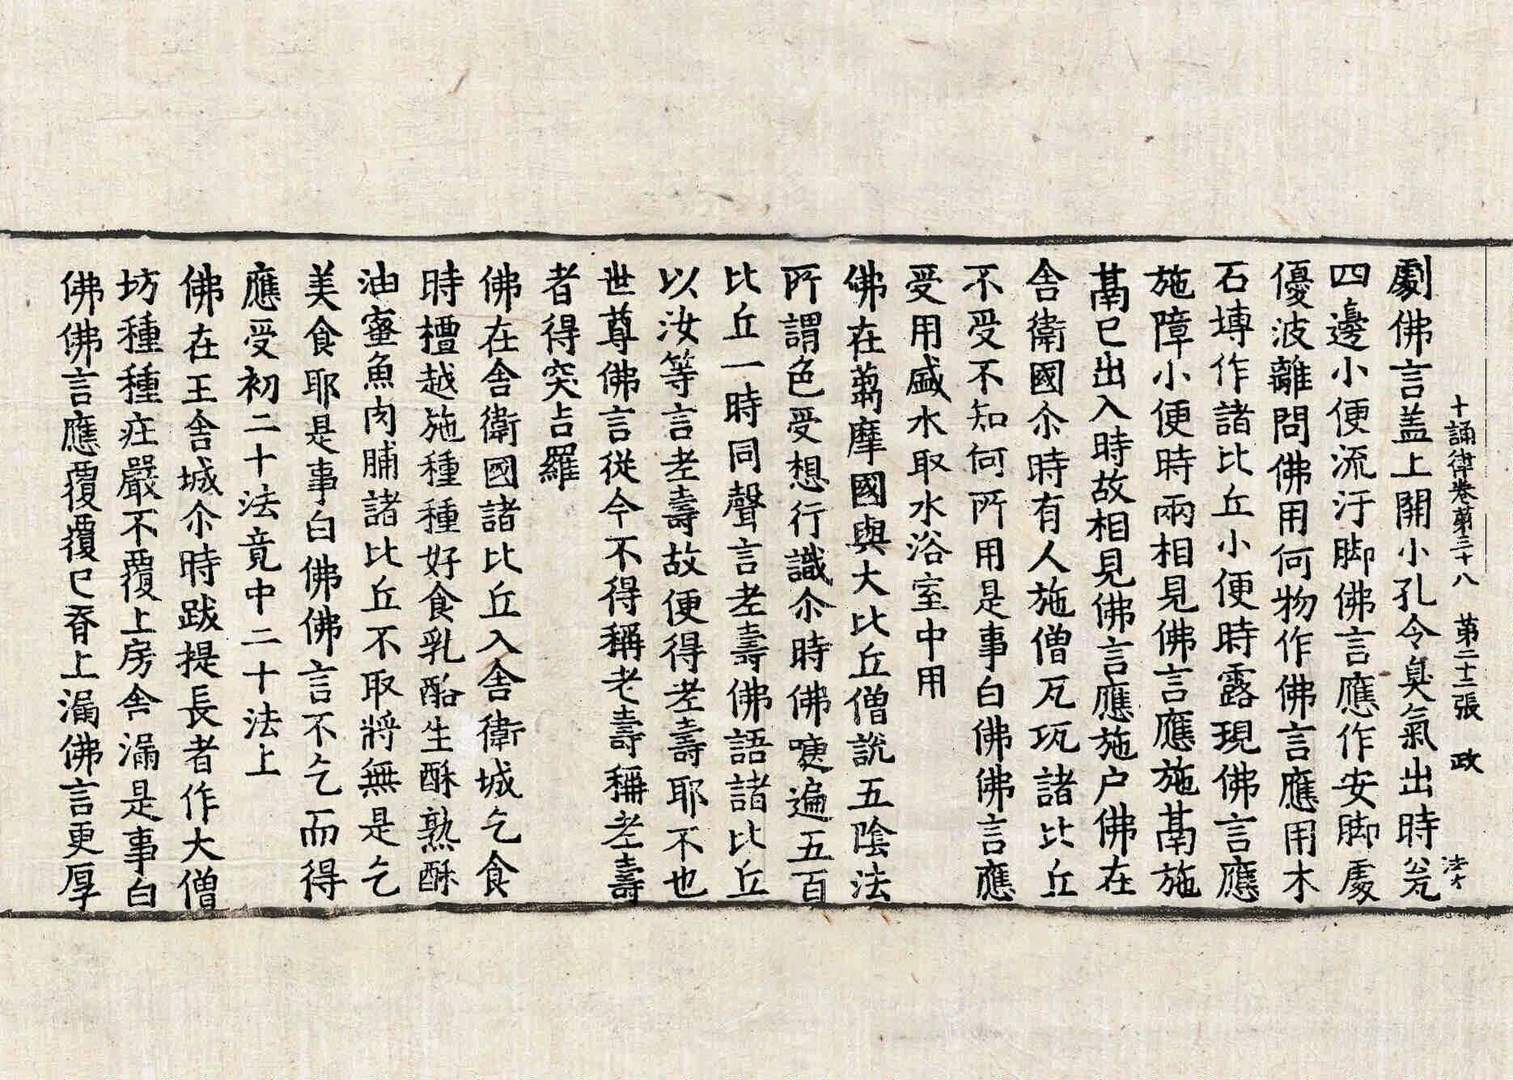 十誦律卷第三十八　第二十二張　政
劇佛言盖上開小孔令臭氣出時瓮
四邊小便流汙脚佛言應作安脚處
優波離問佛用何物作佛言應用木
石塼作諸比丘小便時露現佛言應
施障小便時兩相見佛言應施鬲施
鬲已出入時故相見佛言應施户佛在
舍衛國尒時有人施僧瓦瓨諸比丘
不受不知何所用是事白佛佛言應
受用盛水取水浴室中用
佛在蒭摩國與大比丘僧說五陰法
所謂色受想行識尒時佛嚏遍五百
比丘一時同聲言老壽佛語諸比丘
以汝等言老壽故便得老壽耶不也
世尊佛言從今不得稱老壽稱老壽
者得突吉羅
佛在舍衛國諸比丘入舍衛城乞食
時檀越施種種好食乳酪生酥熟酥
油蜜魚肉脯諸比丘不取將無是乞
美食耶是事白佛佛言不乞而得
應受初二十法竟中二十法上
佛在王舍城尒時跋提長者作大僧
坊種種庄嚴不覆上房舍漏是事白
佛佛言應覆覆已脊上漏佛言更厚